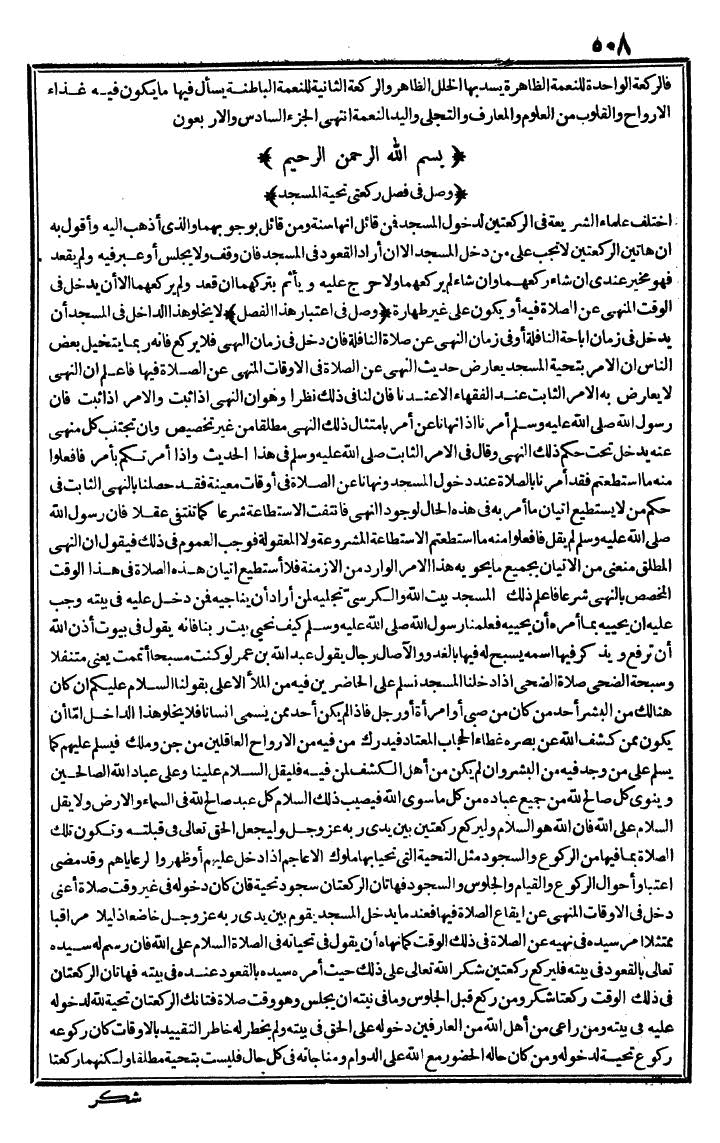 ٥٠٨
فالركعة الواحدة للنعمة الظاهرة يسد بها الخلل الظاهر والركعة الثانية للنعمة الباطنة يسأل فيها ما يكون فيه غذاء
الارواح والقلوب من العلوم والمعارف والتجلى واليد النعمة انتهى الجزء السادس والاربعون
﴿بسم الله الرحمن الرحيم﴾
﴿وصل فى فصل ركعتى تحية المسجد﴾
اختلف علماء الشريعة فى الركعتين لدخول المسجد فمن قائل انها سنة ومن قائل بوجوبهما والذى أذهب اليه وأقول به
ان هاتين الركعتين لا تجب على من دخل المسجد الا ان أراد القعود فى المسجد فان وقف ولا يجلس أو عبر فيه ولم يقعد
فهو مخير عندى ان شاء ركعهما وان شاء لم يركعهما ولا حرج عليه ويأثم بتركهما ان قعد ولم يركعهما الا أن يدخل فى
الوقت المنهى عن الصلاة فيه أو يكون على غير طهارة ﴿وصل فى اعتبار هذا الفصل﴾ لا يخلو هذا الداخل فى المسجد أن
يدخل فى زمان اباحة النافلة أو فى زمان النهى عن صلاة النافلة فان دخل فى زمان النهى فلا يركع فانه ربما يتخيل بعض
الناس ان الامر بتحية المسجد يعارض حديث النهى عن الصلاة فى الاوقات المنهى عن الصلاة فيها فاعلم ان النهى
لا يعارض به الامر الثابت عند الفقهاء الا عندنا فان لنا فى ذلك نظرا وهو ان النهى اذا ثبت والامر اذا ثبت فان
رسول الله صلى الله عليه وسلم أمرنا اذا نهانا عن أمر بامتثال ذلك النهى مطلقا من غير تخصيص وان نجتنب كل منهى
عنه يدخل تحت حكم ذلك النهى وقال فى الامر الثابت صلى الله عليه وسلم فى هذا الحديث واذا أمرتكم بأمر فافعلوا
منه ما استطعتم فقد أمرنا بالصلاة عند دخول المسجد ونهانا عن الصلاة فى أوقات معينة فقد حصلنا بالنهى الثابت فى
حكم من لا يستطيع اتيان ما أمر به فى هذه الحال لوجود النهى فانتفت الاستطاعة شرعا كما تنتفى عقلا فان رسول الله
صلى الله عليه وسلم لم يقل فافعلوا منه ما استطعتم الاستطاعة المشروعة ولا المعقولة فوجب العموم فى ذلك فيقول ان النهى
المطلق منعنى من الاتيان بجميع ما يحويه هذا الامر الوارد من الازمنة فلا أستطيع اتيان هذه الصلاة فى هذا الوقت
المخصص بالنهى شرعا فاعلم ذلك المسجد بيت الله والكرسى تجليه لمن أراد أن يناجيه فمن دخل عليه فى بيته وجب
عليه ان يحييه بما أمره أن يحييه فعلمنا رسول الله صلى الله عليه وسلم كيف نحيى بيت ربنا فانه يقول فى بيوت أذن الله
أن ترفع ويذكر فيها اسمه يسبح له فيها بالغدو والآصال رجال يقول عبد الله بن عمر لو كنت مسبحا أتممت يعنى متنفلا
وسبحة الضحى صلاة الضحى اذا دخلنا المسجد نسلم على الحاضرين فيه من الملأ الاعلى بقولنا السلام عليكم ان كان
هنالك من البشر أحد من كان من صبى أو امرأة أو رجل فاذا لم يكن أحد ممن يسمى انسانا فلا يخلو هذا الداخل امّا أن
يكون ممن كشف الله عن بصره غطاء الحجاب المعتاد فيدرك من فيه من الارواح العاقلين من جن وملك فيسلم عليهم كما
يسلم على من وجد فيه من البشر وان لم يكن من أهل الكشف لمن فيه فليقل السلام علينا وعلى عباد الله الصالحين
وينوى كل صالح لله من جميع عباده من كل ما سوى الله فيصيب ذلك السلام كل عبد صالح لله فى السماء والارض ولا يقل
السلام على الله فان الله هو السلام وليركع ركعتين بين يدى ربه عز وجل وليجعل الحق تعالى فى قبلته وتكون تلك
الصلاة بما فيها من الركوع والسجود مثل التحية التى تحيا بها ملوك الاعاجم اذا دخل عليهم أو ظهروا لرعاياهم وقد مضى
اعتبار أحوال الركوع والقيام والجلوس والسجود فهاتان الركعتان سجود تحية فان كان دخوله فى غير وقت صلاة أعنى
دخل فى الاوقات المنهى عن ايقاع الصلاة فيها فعندما يدخل المسجد يقوم بين يدى ربه عز وجل خاضعا ذليلا مراقبا
ممتثلا امر سيده فى نهيه عن الصلاة فى ذلك الوقت كما نهاه أن يقول فى تحياته فى الصلاة السلام على الله فان رسم له سيده
تعالى بالقعود فى بيته فليركع ركعتين شكر الله تعالى على ذلك حيث أمره سيده بالقعود عنده فى بيته فهاتان الركعتان
فى ذلك الوقت ركعتا شكر ومن ركع قبل الجلوس وما فى نيته ان يجلس وهو وقت صلاة فتانك الركعتان تحية لله لدخوله
عليه فى بيته ومن راعى من أهل الله من العارفين دخوله على الحق فى بيته ولم يخطر له خاطر التقييد بالاوقات كان ركوعه
ركوع تحية لدخوله ومن كان حاله الحضور مع الله على الدوام ومناجاته فى كل حال فليست بتحية مطلقا ولكنهما ركعتا
شكر